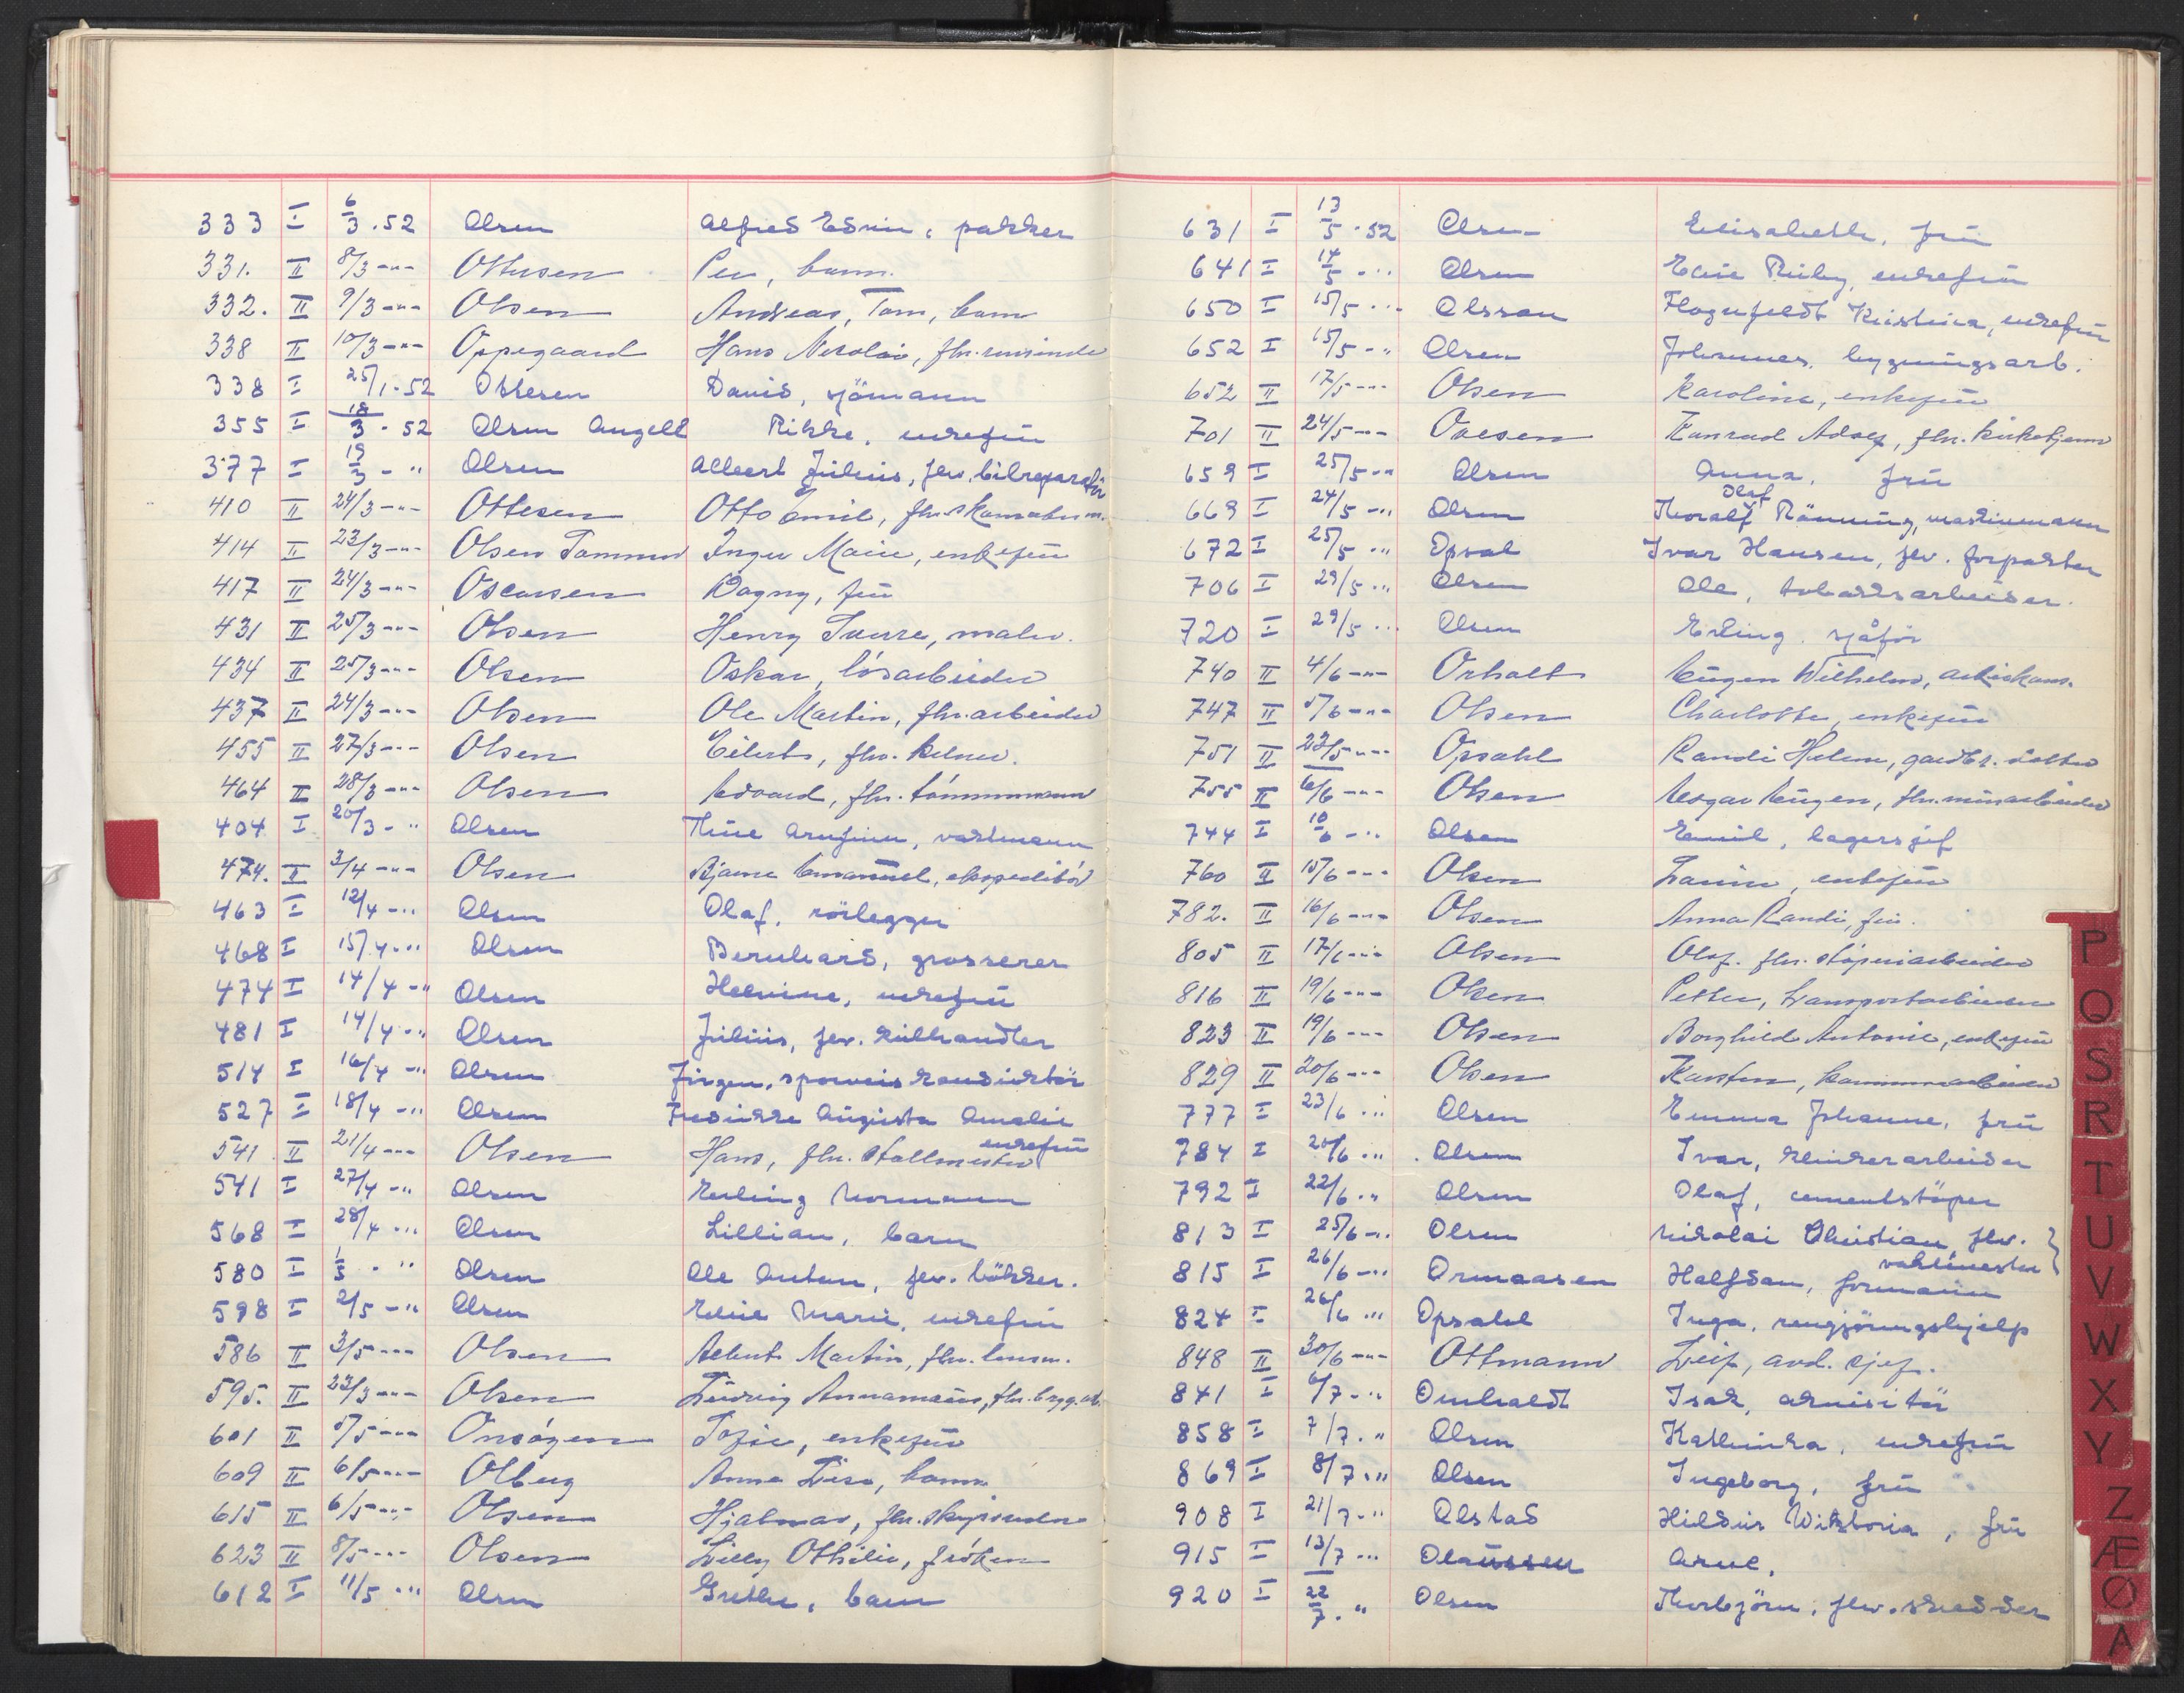 333 I 6/3.52 Olsen Alfred Edvin, pakker
331. II 8/3 -"- Ottesen Per, barn.
332. II 9/3 -"- Olsen Andreas, Tom, barn
338 II 10/3 -"- Oppegaard Hans Nicolai, fhv.
338 I 25/1.52 Ottesen David, sjömann
355 I 18/3.52 Olsen Angell Rikke, enkefru
377 I 19/3 - " Olsen Albert Julius, fhv. bilreparatör
410 II 24/3 -"- Ottesen Otto Emil, fhv.
414 II 23/3 -"- Olsen Tommerd Inger Marie, enkefru
417 II 24/3 -"- Oscarsen Dagny, fru
431 II 25/3 -"- Olsen Henry Sverre, maler.
434 II 25/3 -"- Olsen Oskar, lösarbeider
437 II 24/3 -"- Olsen Ole Martin, fhv. arbeider
455 II 27/3 -"- Olsen Eilert, fhv. kelner.
464 II 28/3 -"- Olsen Edvard, fhv. tömmermann
404 I 20/3 - " Olsen Thue Arnfinn, vaktmann
474. II 3/4 -"- Olsen Bjarne Emanuel, ekspeditör
463 I 12/4 - " Olsen Olaf, rörlegger
468 I 15/4 - " Olsen Bernhard, grosserer
474 I 14/4 - " Olsen Helvine, enkefru
481 I 14/4 - " Olsen Julius, fhv. kullhandler
514 I 16/4 - " Olsen Jörgen, sporveiskonduktör
527 I 18/4 - " Olsen Fredrikke Augusta Amalie
enkefru
541 II 21/4 -"- Olsen Hans, fhv. stallmester
541 I 27/4 - " Olsen Erling Normann
568 I 28/4 - " Olsen Lillian, barn
580 I 1/5 - " Olsen Ole Anton, fhv. bökker.
598 I 2/5 - " Olsen Elise Marie, enkefru
586 II 3/5 -"- Olsen Albert Martin, fhv.
595. II 23/3 -"- Olsen Ludvig Annamaeus, fhv. brygg.arb.
601 II 5/5 -"- Onsögen Sofie, enkefru
609 II 6/5 -"- Olberg Anne Lise, barn
615 II 6/5 -"- Olsen Hjalmar, fhv.
623 II 8/5 -"- Olsen Lilly Othilie, fröken
612 I 11/5 - " Olsen Grethe, barn
631 I 13/5.52 Olsen Elisabeth, fru
641 I 14/5 - " Olsen Elise Ruby, enkefru
650 I 15/5 - " Olsson Flogenfeldt Kristina, enkefru
652 I 15/5 - " Olsen Johannes, bygningsarb.
652 II 17/5 -"- Olsen Karoline, enkefru
701 II 24/5 -"- Ovesen Konrad Adolf, fhv. kirketjener
659 I 25/5 - " Olsen Anna, fru
669 I 24/5 - " Olsen Thoralf Olaf Rönning, maskinmann
672 I 25/5 - " Opsal Ivar Hansen, fhv. forpakter
706 I 29/5 - " Olsen Ole, tobakksarbeider.
720 I 29/5 - " Olsen Erling, sjåför
740 II 4/6 -"- Orholt Eugen Wilhelm,
747 II 5/6 -"- Olsen Charlotte, enkefru
751 II 23/5 -"- Opsahl Randi Helene, gardbr. datter
755 II 6/6 -"- Olsen Asgar Eugen, fhv. murarbeider
744 I 10/6 - " Olsen Emil, lagersjef
760 II 15/6 -"- Olsen Laura, enkefru
782. II 16/6 -"- Olsen Anna Randi, fru.
805 II 17/6 -"- Olsen Olaf. fhv. stöperiarbeider
816 II 19/6 -"- Olsen Petter, transportarbeider
823 II 19/6 -"- Olsen Borghild Antonie, enkefru
829 II 20/6 -"- Olsen Karsten, kommunearbeider
777 I 23/6 - " Olsen Emma Johanne, fru
784 I 20/6 - " Olsen Ivar, klinkerarbeider
792 I 22/6 - " Olsen Olaf, cementstöper
813 I 25/6 - " Olsen Nikolai Christian, fhv. }
vaktmester
815 I 26/6 - " Ormaasen Halfdan, formann
824 I 26/6 - " Opsahl Inga, rengjöringshjelp
848 II 30/6 -"- Ottmann Leif, avd. sjef.
841 I 6/7 - " Omholdt Isak, akvisitör
858 I 7/7 - " Olsen Kathinka, enkefru
869 I 8/7 - " Olsen Ingeborg, fru
908 I 21/7 - " Olstad Hildur Wiktoria, fru
915 I 13/7 - " Olaussen Arne,
920 I 22/7. " Olsen Thorbjörn, fhv. skredder
P
Q
S
R
T
U
V
W
X
Y
Z
Æ
Ø
A